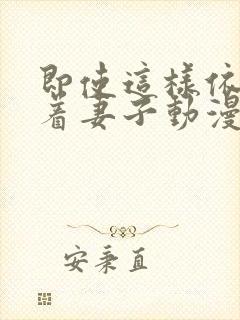 即使這樣依
著妻子動漫
安秉直